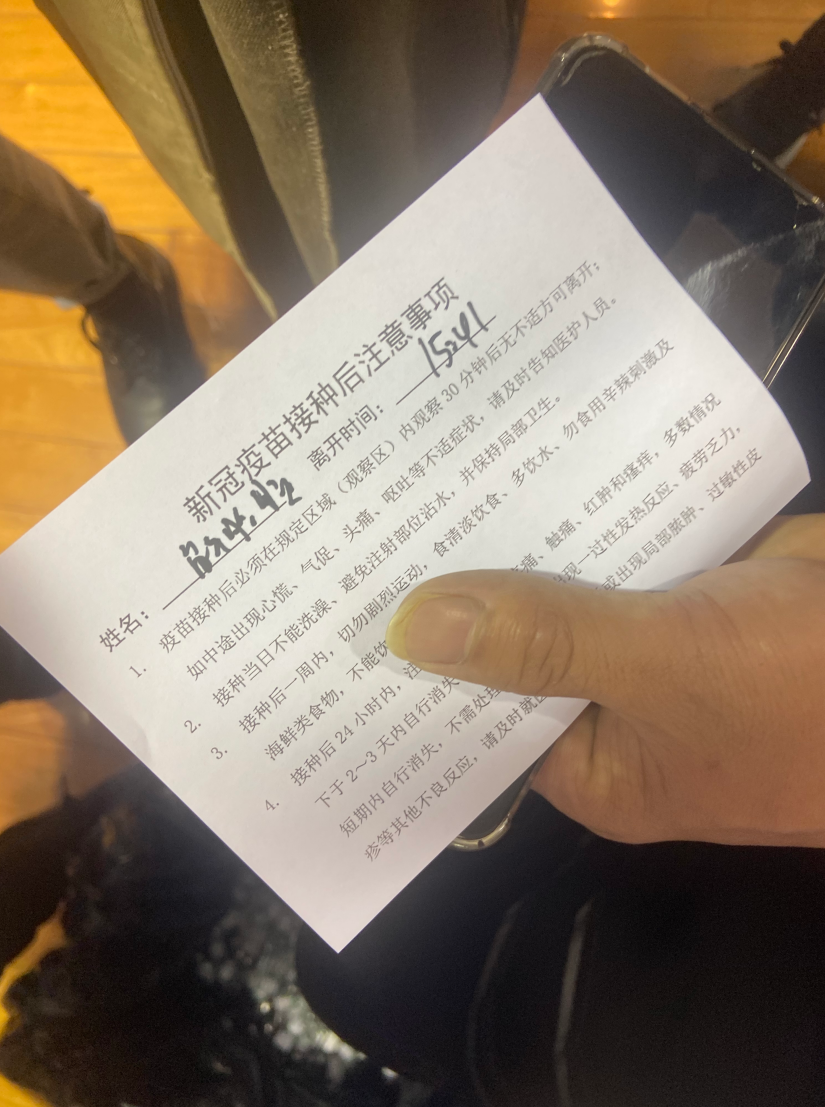 新冠疫苗接种后注意事项
姓名： 离开时间：
1. 疫苗接种后必须在规定区域（观察区）内观察 30 分钟后无不适方可离开；
如中途出现心慌、气促、头痛、呕吐等不适症状，请及时告知医护人员。
2. 接种当日不能洗澡、避免注射部位沾水，并保持局部卫生。
3. 接种后一周内，切勿剧烈运动，食清淡饮食、多饮水、勿食用辛辣刺激及
海鲜类食物，不能饮
4. 接种后 24 小时内，注 痛、触痛、红肿和瘙痒，多数情况
下于 2～3 天内自行消失 现一过性发热反应、疲劳乏力，
短期内自行消失，不需处理 或出现局部脓肿、过敏性皮
疹等其他不良反应，请及时就